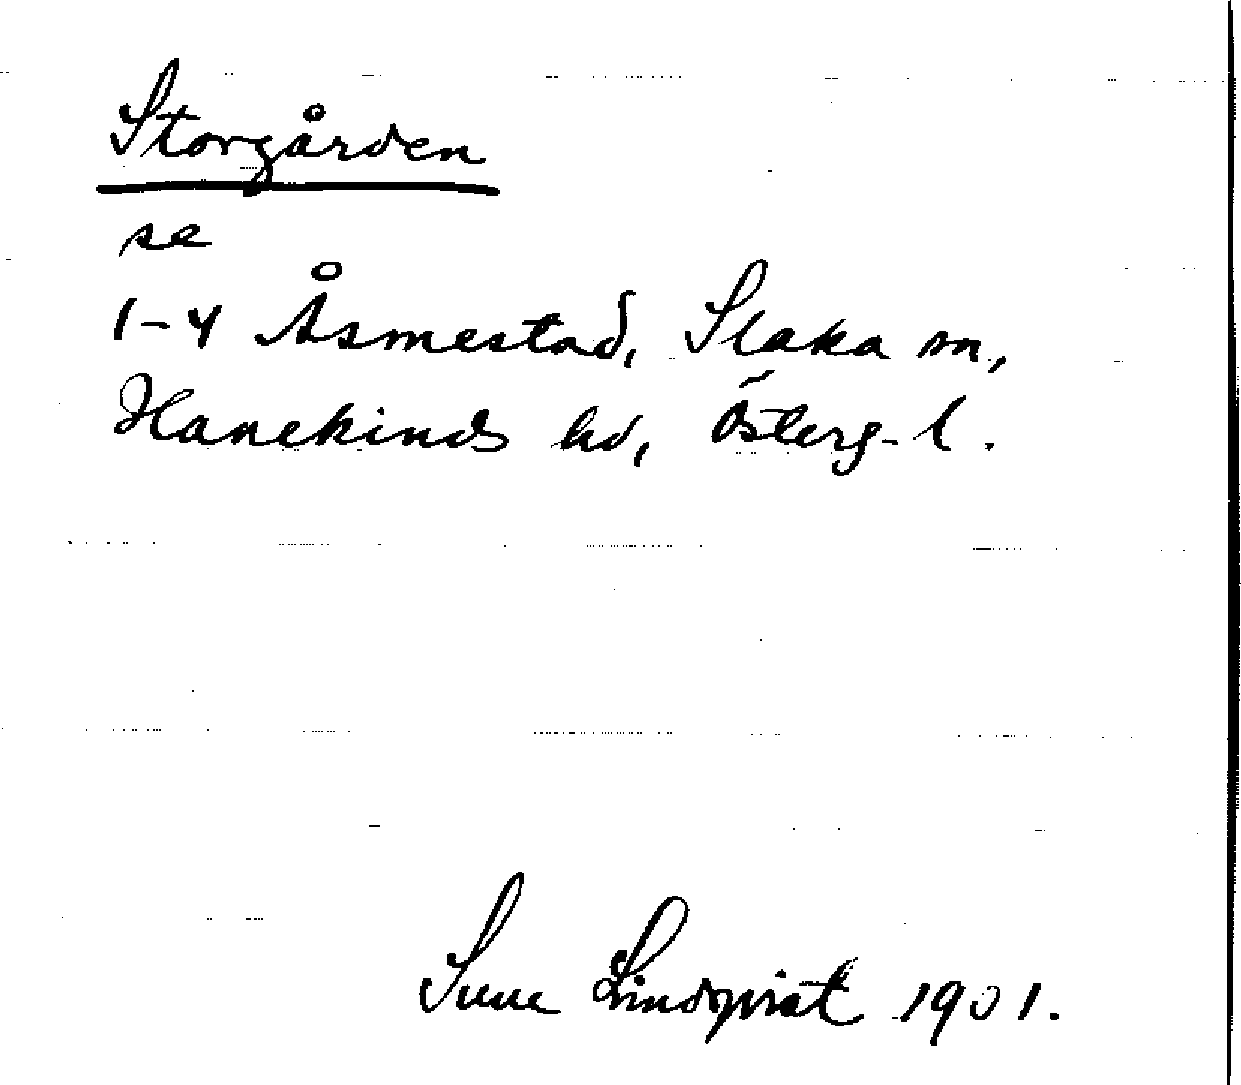 Storgården
se
1-4 Åsmestad, Slaka sn,
Hanekinds hd, Österg-l.
Sune Lindqvist 1901.